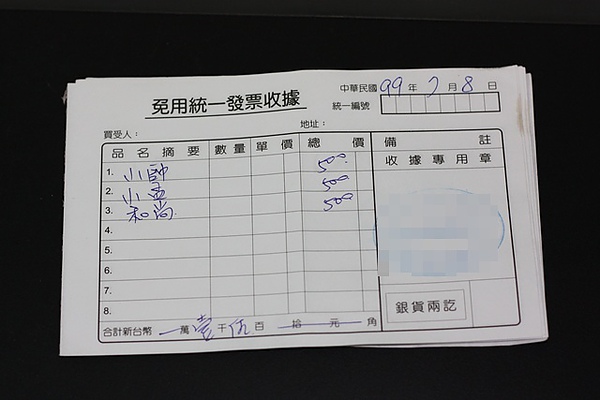 免用統一發票收據
中華民國99年7月8日
統一編號
買受人： 地址：
品名摘要 數量 單價 總價 備註
1. 小帥 500 收據專用章
2. 小孟 500
3. 和尚 500
4.
5.
6.
7.
8. 銀貨兩訖
合計新台幣 萬壹千伍百 拾 元 角